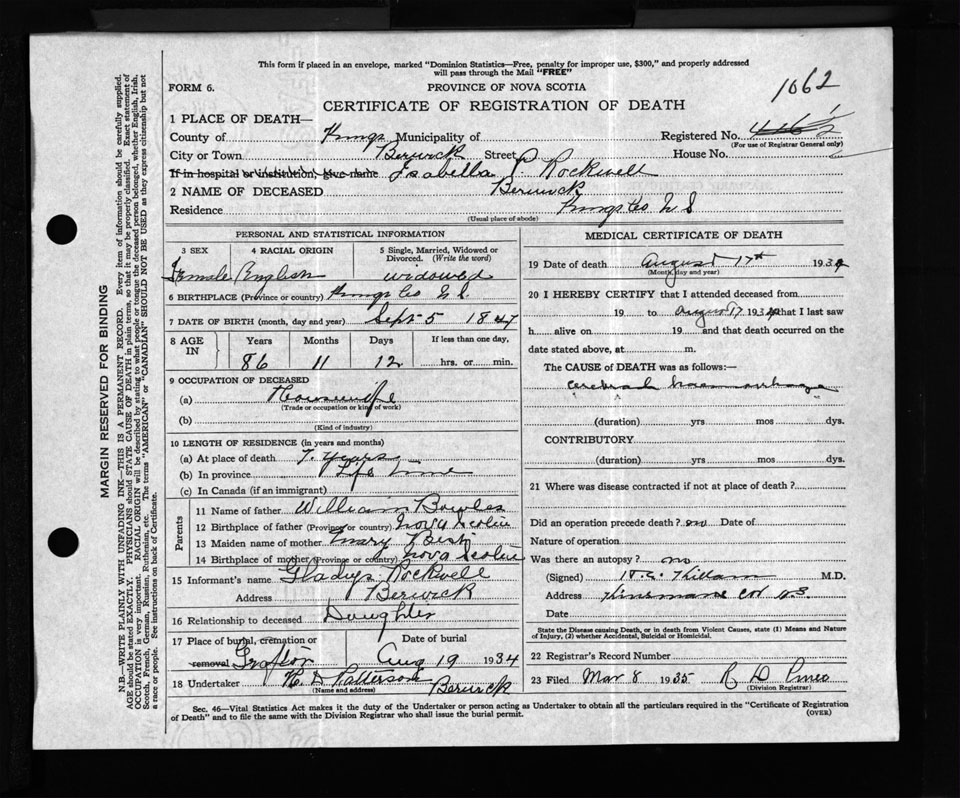 This form if placed in an envelope, marked "Dominion Statistics—Free, penalty for improper use, $300," and properly addressed
will pass through the Mail "FREE"
FORM 6.
PROVINCE OF NOVA SCOTIA
1062
CERTIFICATE OF REGISTRATION OF DEATH
1 PLACE OF DEATH—
County of Kings Municipality of Registered No.
(For use of Registrar General only)
City or Town Berwick Street House No.
If in hospital or institution, give name Isabella P. Rockwell
2 NAME OF DECEASED Berwick
Residence Kings Co N S
(Usual place of abode)
PERSONAL AND STATISTICAL INFORMATION
3 SEX 4 RACIAL ORIGIN 5 Single, Married, Widowed or Divorced. (Write the word)
Female English widowed
6 BIRTHPLACE (Province or country) Kings Co N.S.
7 DATE OF BIRTH (month, day and year) Sept 5 1847
8 AGE IN Years Months Days If less than one day,
86 11 12 hrs. or min.
9 OCCUPATION OF DECEASED
(a) Housewife
(Trade or occupation or kind of work)
(b)
(Kind of industry)
10 LENGTH OF RESIDENCE (in years and months)
(a) At place of death 7. years
(b) In province Life time
(c) In Canada (if an immigrant)
Parents
11 Name of father William Bowles
12 Birthplace of father (Province or country) Nova Scotia
13 Maiden name of mother Mary Best
14 Birthplace of mother (Province or country) Nova Scotia
15 Informant's name Gladys Rockwell
Address Berwick
16 Relationship to deceased Daughter
17 Place of burial, cremation or removal Grafton
Date of burial
Aug 19 1934
18 Undertaker H. D Patterson Berwick
(Name and address)
MEDICAL CERTIFICATE OF DEATH
19 Date of death August 17th 1934
(Month, day and year)
20 I HEREBY CERTIFY that I attended deceased from
19 to August 17 1934 that I last saw
h alive on 19 and that death occurred on
date stated above, at m.
The CAUSE OF DEATH was as follows:—
Cerebral haemorrhage
(duration) yrs mos dys.
CONTRIBUTORY
(duration) yrs mos dys.
21 Where was disease contracted if not at place of death?
Did an operation precede death? no Date of
Nature of operation
Was there an autopsy? no
(Signed) M.D.
Address
Date
State the Disease causing Death, or in death from Violent Causes, state (1) Means and Nature
of Injury, (2) whether Accidental, Suicidal or Homicidal.
22 Registrar's Record Number
23 Filed Mar 8 1935 R D Pineo
(Division Registrar)
Sec. 46—Vital Statistics Act makes it the duty of the Undertaker or person acting as Undertaker to obtain all the particulars required in the "Certificate of Registration
of Death" and to file the same with the Division Registrar who shall issue the burial permit.
(OVER)
MARGIN RESERVED FOR BINDING
N.B.—WRITE PLAINLY WITH UNFADING INK—THIS IS A PERMANENT RECORD. Every item of information should be carefully supplied.
AGE should be stated EXACTLY. PHYSICIANS should STATE CAUSE OF DEATH in plain terms, so that it may be properly classified. Exact statement of
OCCUPATION is very important. RACIAL ORIGIN will be described by stating to what people or tongue the deceased person belonged, whether English, Irish,
Scotch, French, German, Russian, Ruthenian, etc. The terms "AMERICAN" or "CANADIAN" SHOULD NOT BE USED as they express citizenship but not
a race or people. See instructions on back of Certificate.